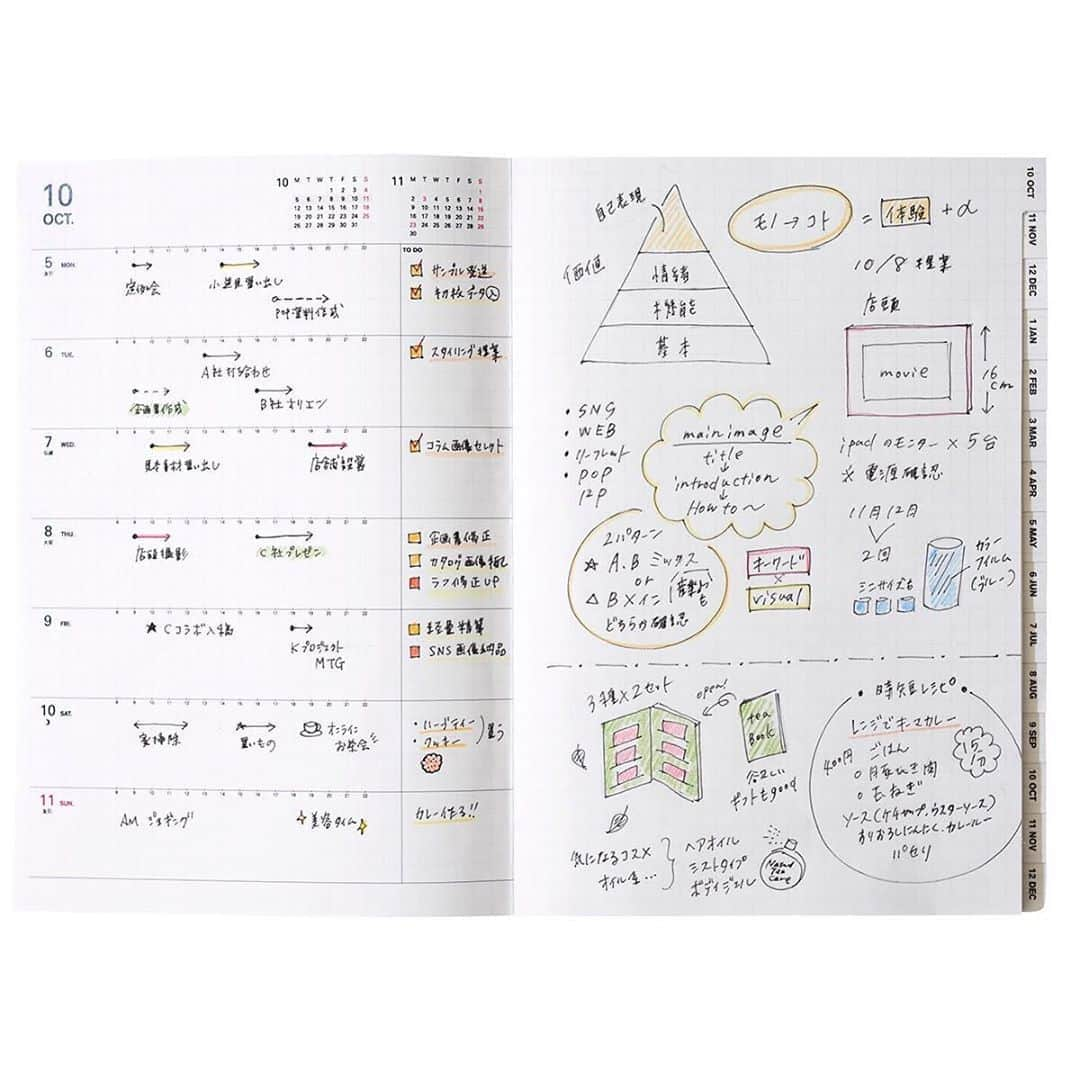 10
OCT.
10
M T W T F S S
1 2 3 4
5 6 7 8 9 10 11
12 13 14 15 16 17 18
19 20 21 22 23 24 25
26 27 28 29 30 31
11
M T W T F S S
1
2 3 4 5 6 7 8
9 10 11 12 13 14 15
16 17 18 19 20 21 22
23 24 25 26 27 28 29
30
TO DO
5 MON.
定例会
小道具買い出し
POP資料作成
サンプル発送
切抜データ入
6 TUE.
A社打合わせ
企画書作成
B社オリエン
スタイリング提案
7 WED.
見本素材買い出し
店舗設営
コラム画像セレクト
8 THU.
店舗撮影
C社プレゼン
企画書修正
カタログ画像
ラフ修正UP
9 FRI.
★ Cコラボ入稿
Kプロジェクト
MTG
経費精算
SNS画像納品
10 SAT.
家掃除
買いもの
オンライン
お茶会
・ハーブティー
・クッキー
買う
11 SUN.
AM ジョギング
美容タイム
カレー作る!!
自己表現
価値
情緒
機能
基本
モノ→コト
= 体験 + α
10/8 提案
店頭
movie
16cm
ipadのモニター × 5台
※ 電源確認
・SNS
・WEB
・リーフレット
・POP
12P
main image
title
↓
introduction
↓
How to ~
2パターン
★ A.B ミックス
or
△ Bメイン
どちらか確認
キーワード
×
visual
11月12月
2回
ミニサイズも
カラー
フィルム
(ブルー)
3種×2セット
open!
tea
Book
ギフトもgood
・時短レシピ・
レンジでキーマカレー
15分
400円
ごはん
○豚ひき肉
○長ねぎ
ソース(ケチャップ、ウスターソース)
すりおろしにんにく、カレールー
パセリ
気になるコスメ
オイル…
ヘアオイル
ミストタイプ
ボディジェル
10 OCT
11 NOV
12 DEC
1 JAN
2 FEB
3 MAR
4 APR
5 MAY
6 JUN
7 JUL
8 AUG
9 SEP
10 OCT
11 NOV
12 DEC